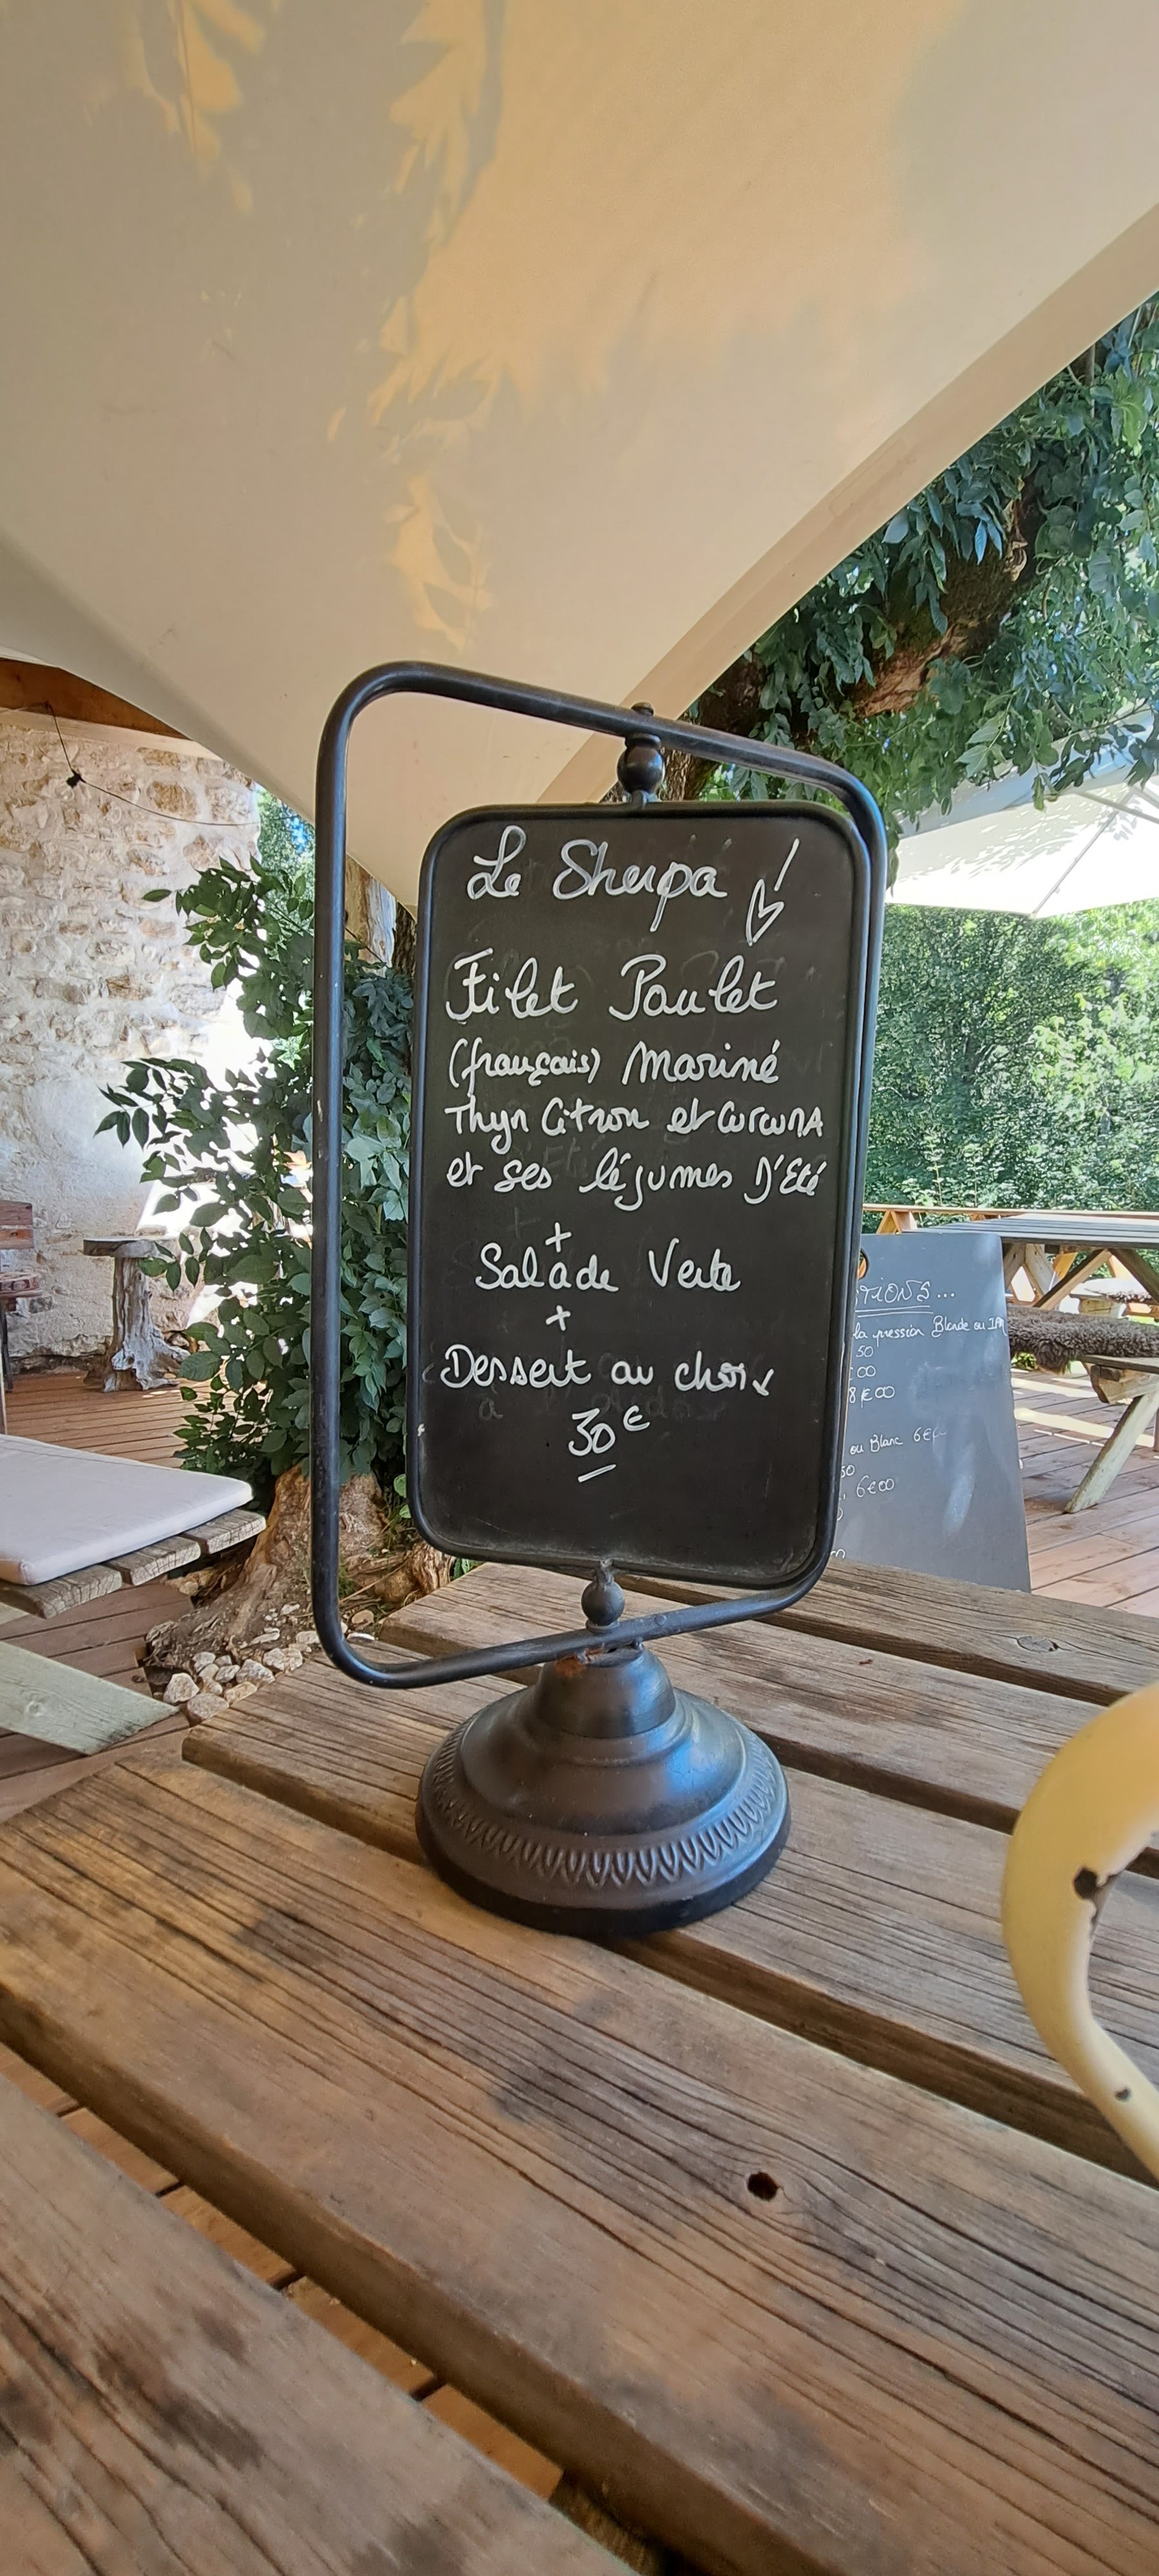 Le Sherpa
Filet Poulet
(français) Mariné
Thyn Citron et Curcuma
et ses légumes D'Eté
+
Salade Verte
+
Dessert au choix
30€
TIONS...
la pression Blonde ou IPA
50
00
8€00
ou Blanc 6€
50
6€00